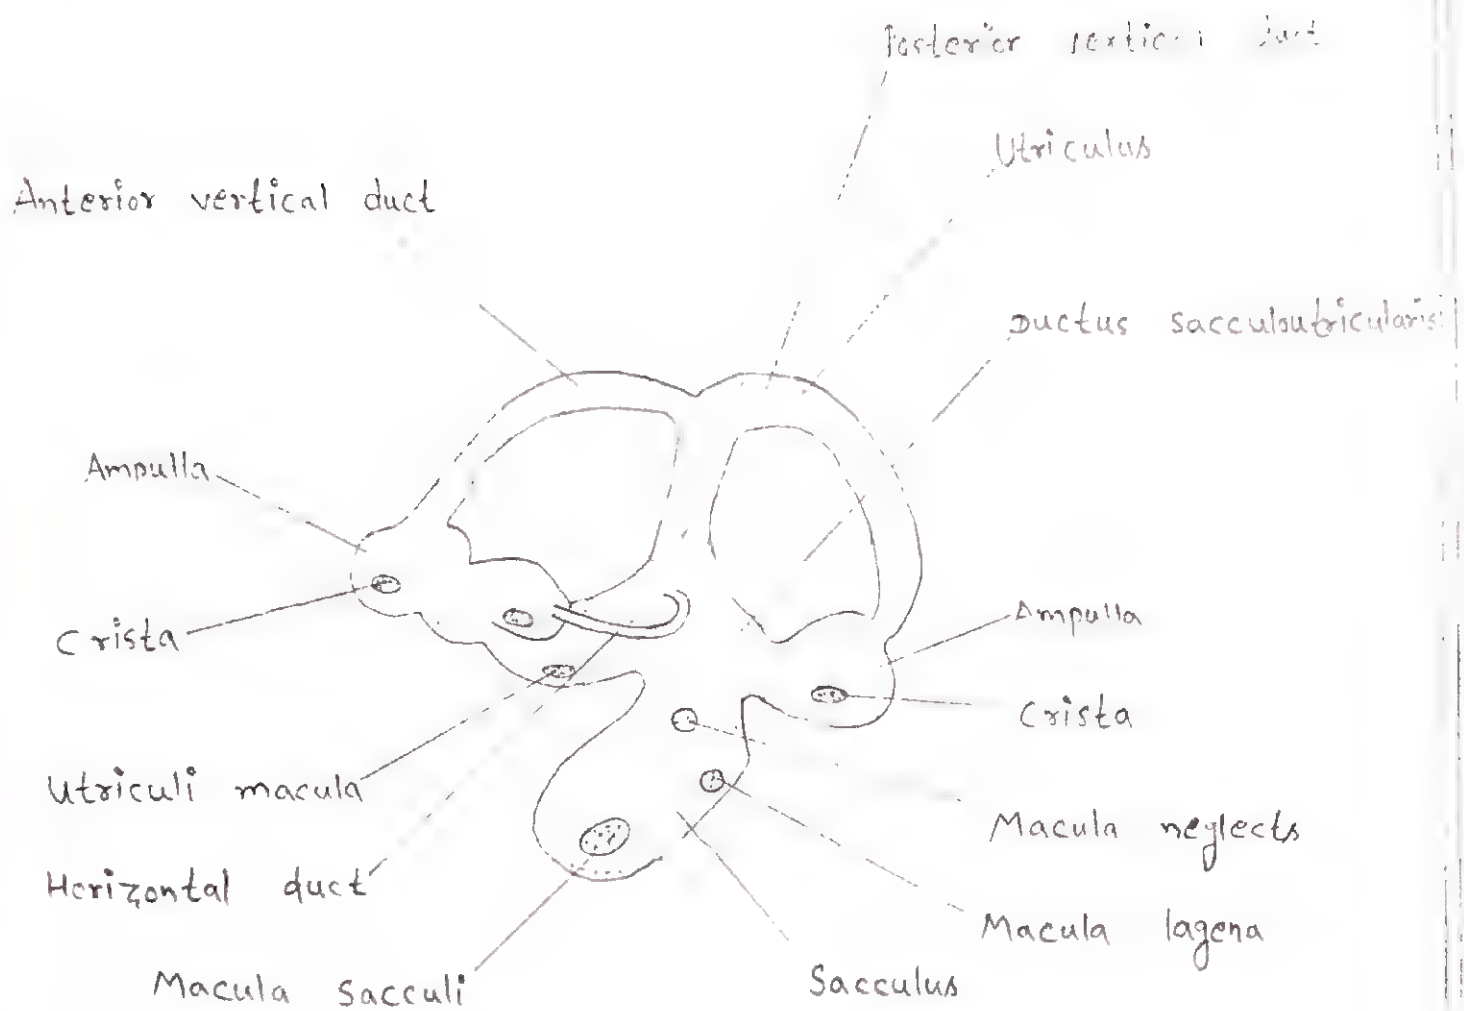 Posterior vertical duct
Utriculus
Anterior vertical duct
Ductus sacculoutricularis
Ampulla
Crista
Ampulla
Crista
Utriculi macula
Macula neglects
Horizontal duct
Macula lagena
Macula Sacculi
Sacculus